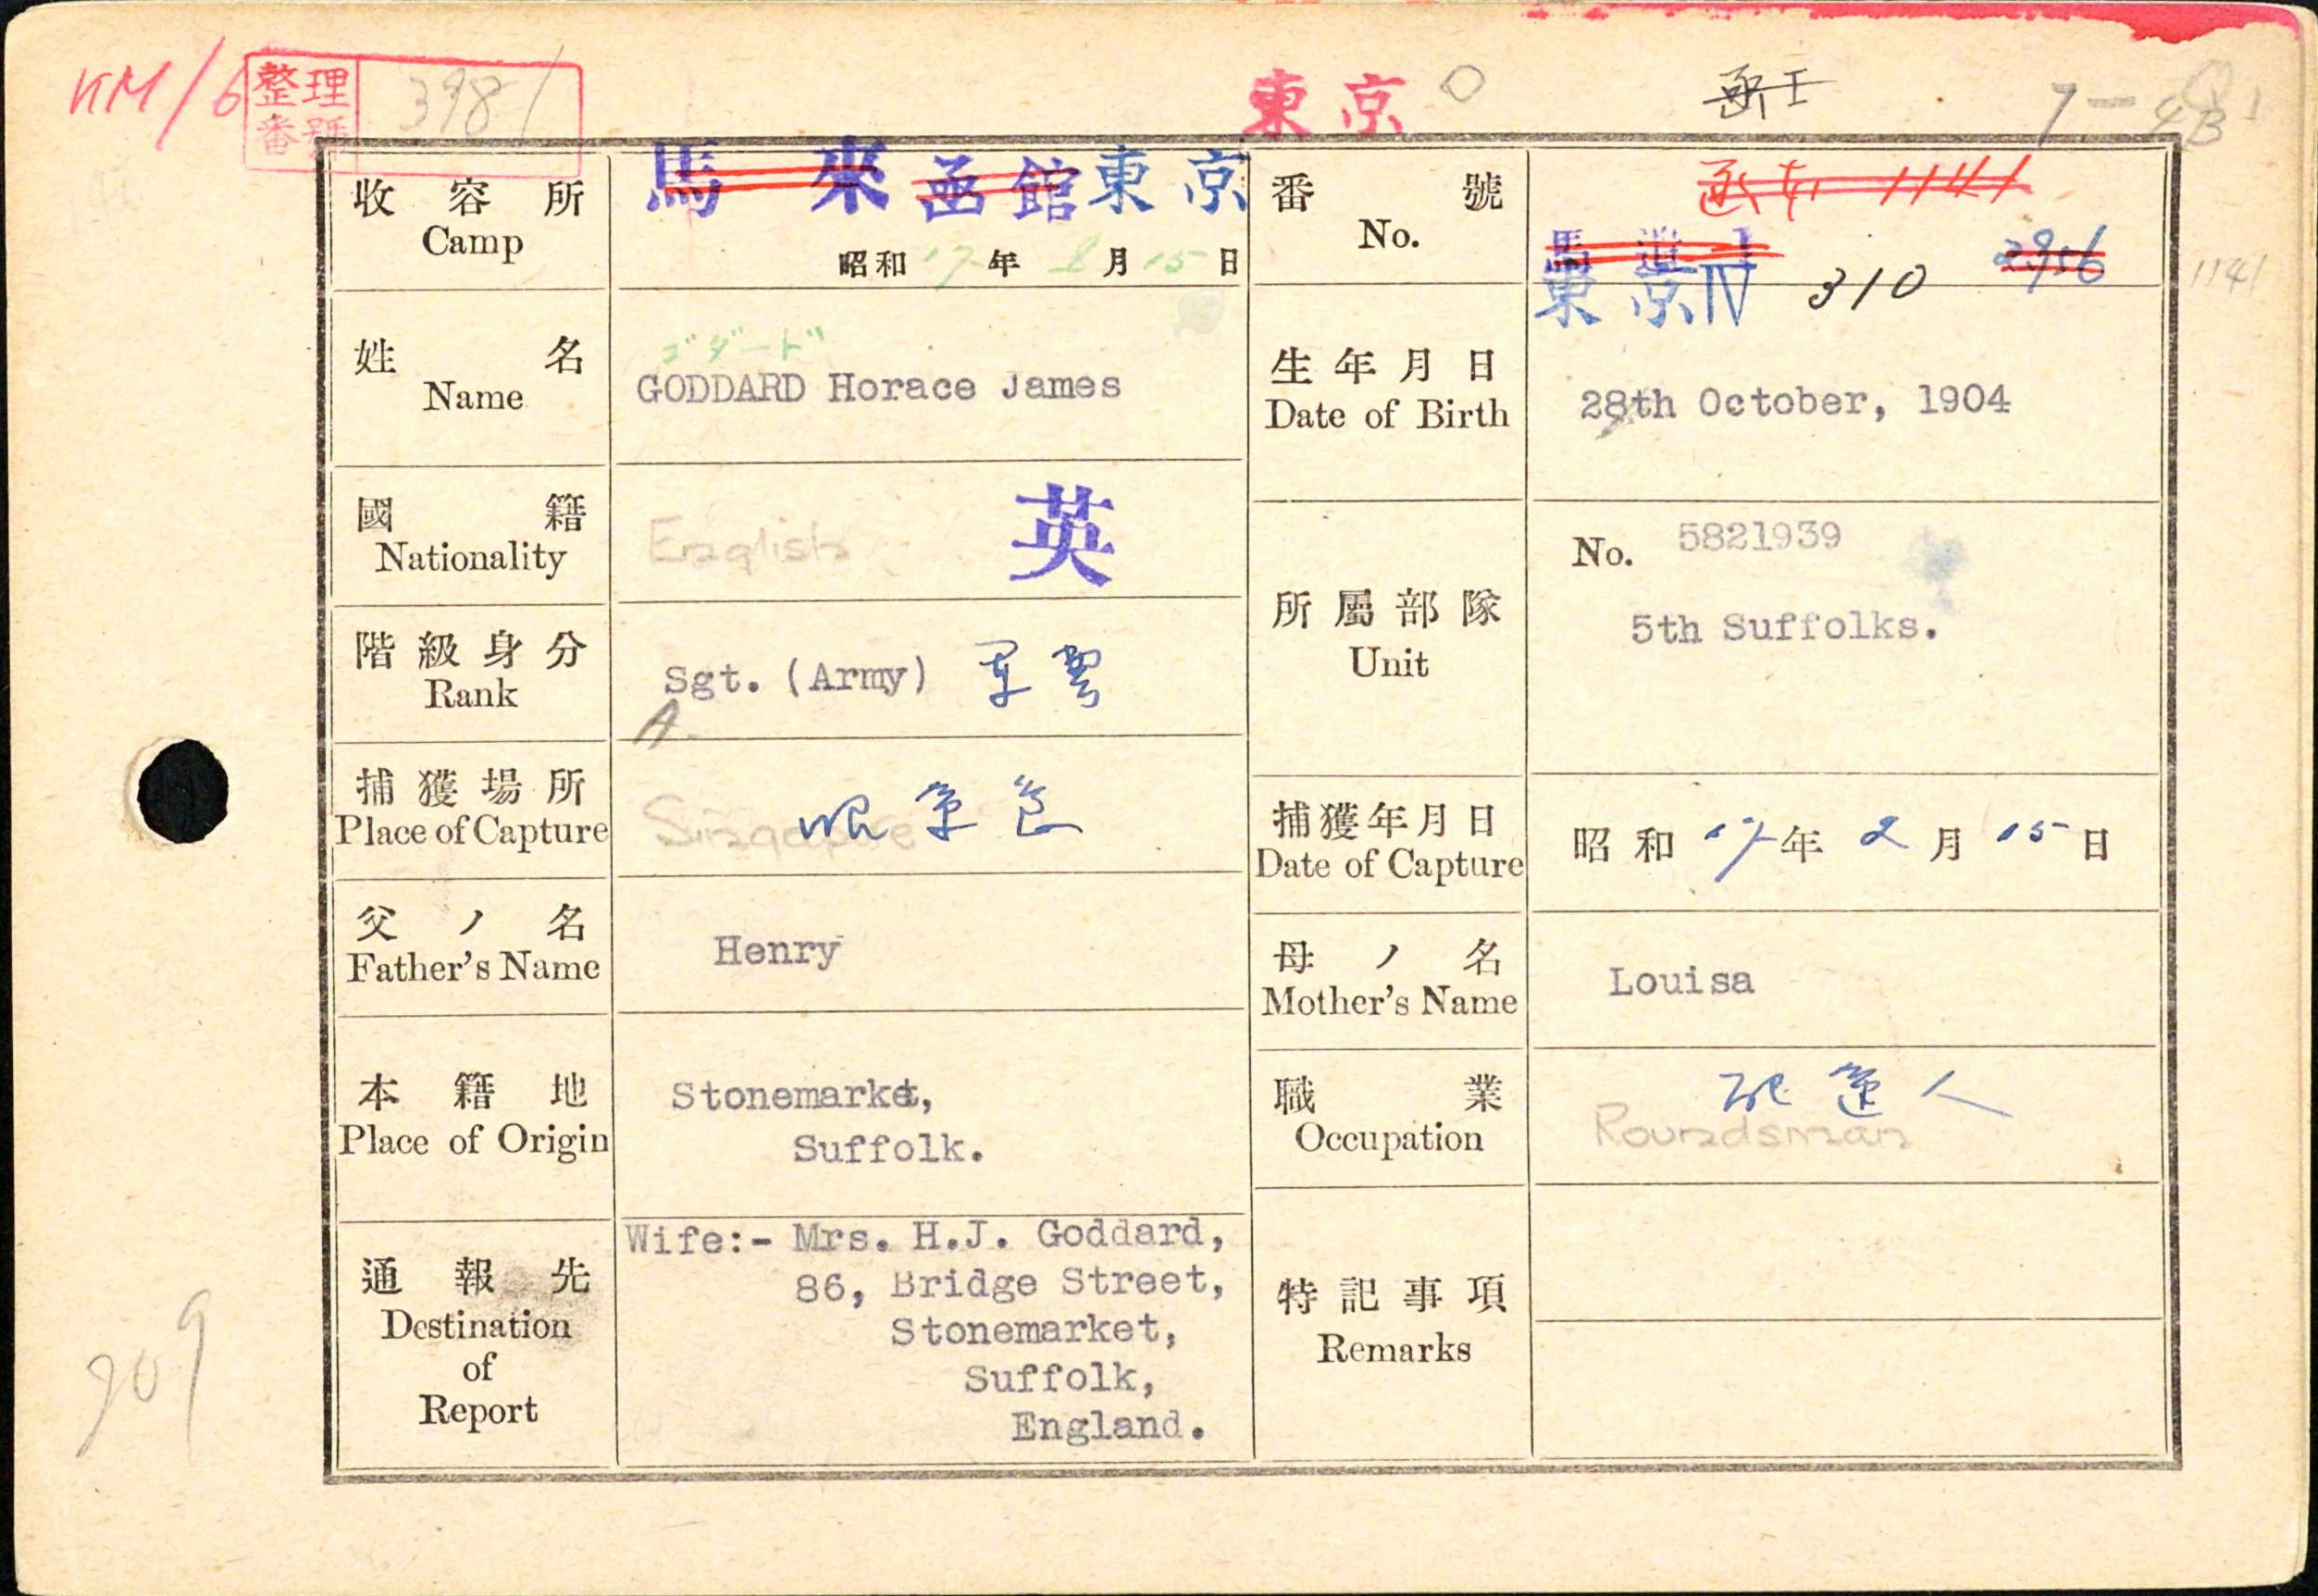 KM/6
整理番號 3981
東京
7-4B
收容所
Camp
馬來 函館 東京
昭和17年8月15日
番號
No.
函本 1141
馬來 I 2956
東京IV 310
1141
姓名
Name
ゴダード
GODDARD Horace James
生年月日
Date of Birth
28th October, 1904
國籍
Nationality
English
英
階級身分
Rank
Sgt. (Army) 軍曹
A
所屬部隊
Unit
No. 5821939
5th Suffolks.
捕獲場所
Place of Capture
Singapore
昭南島
捕獲年月日
Date of Capture
昭和17年2月15日
父ノ名
Father's Name
Henry
母ノ名
Mother's Name
Louisa
本籍地
Place of Origin
Stonemarket,
Suffolk.
職業
Occupation
配達人
Roundsman
通報先
Destination
of
Report
Wife:- Mrs. H.J. Goddard,
86, Bridge Street,
Stonemarket,
Suffolk,
England.
特記事項
Remarks
909